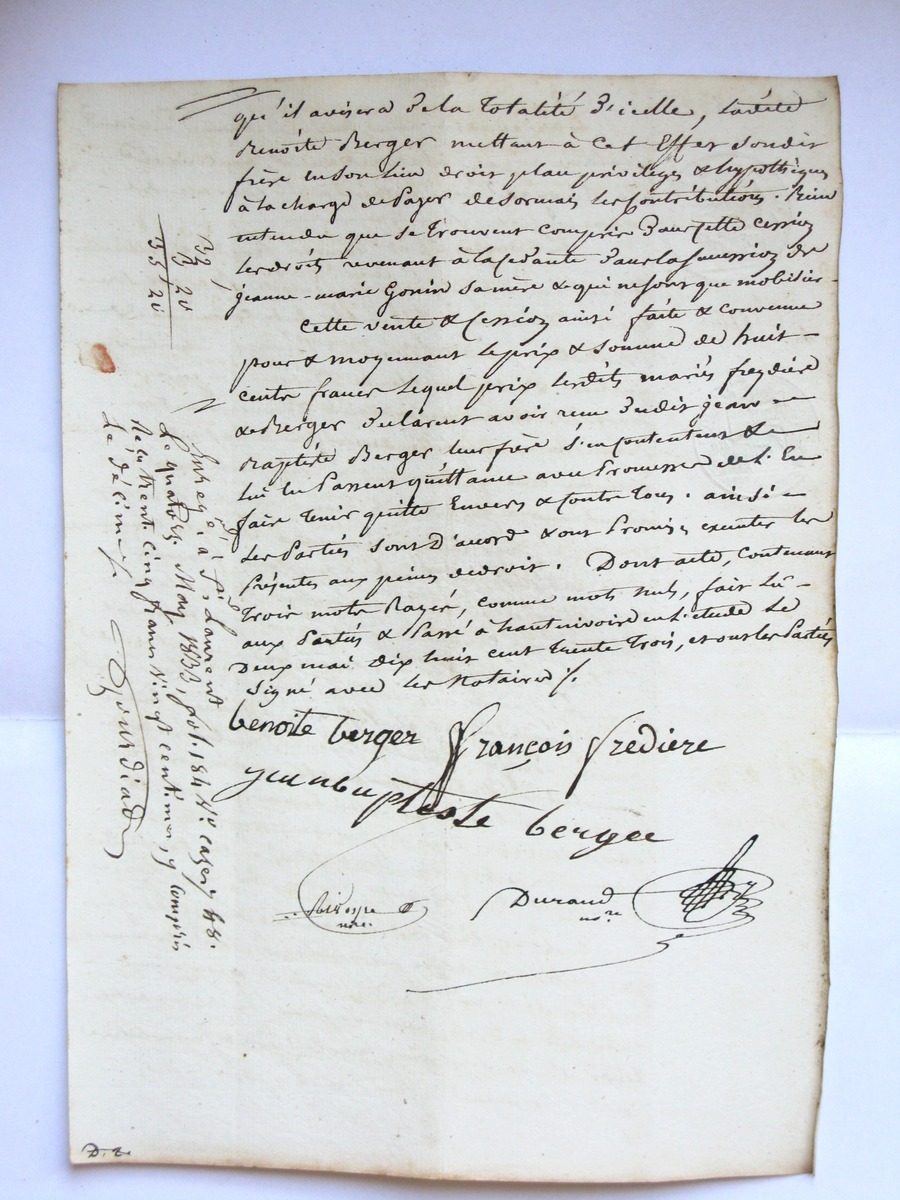 qu'il avisera de la totalité d'icelle, ladite
Benoite Berger mettant à cet Effet sondit
frère en son lieu droit place privilèges & hypothèques
à la charge de Payer desormais les Contributions. Bien
entendu que se trouvent compris dans cette cession
les droits revenant à la Cédante dans la succession de
jeanne-marie Gonin sa mère & qui ne sont que mobilier.
Cette vente & Cession ainsi faite & convenue
pour & moyennant le prix & somme de huit
cents francs lequel prix lesdits mariés freydière
& Berger declarent avoir reçu dudit jean
Baptiste Berger leur frère s'en contentent &
lui en Passent quittance avec Promesse de l'En
faire tenir quitte Envers & contre tous. ainsi
les Parties sont d'acord & ont Promis executer les
Présentes aux peines de droit. Dont acte, contenant
trois mots Rayés, comme mots nuls, fait Lû
aux Parties & Passé à hautrivoire en L'etude Le
Deux mai dix huit cent trente Trois, et ont les Parties
Signé avec les Notaires ./.
benoite berger François Fredière
jeanbapteste berger
nore.
Durand
nore
Enregé. à St. Laurent
Le quatorze May 1833, fol. 184 Vo. cases 4 &
Reçu trente cinq francs vingt centimes, y compris
Le décime ./.
32
3 20
35 20
D. 2